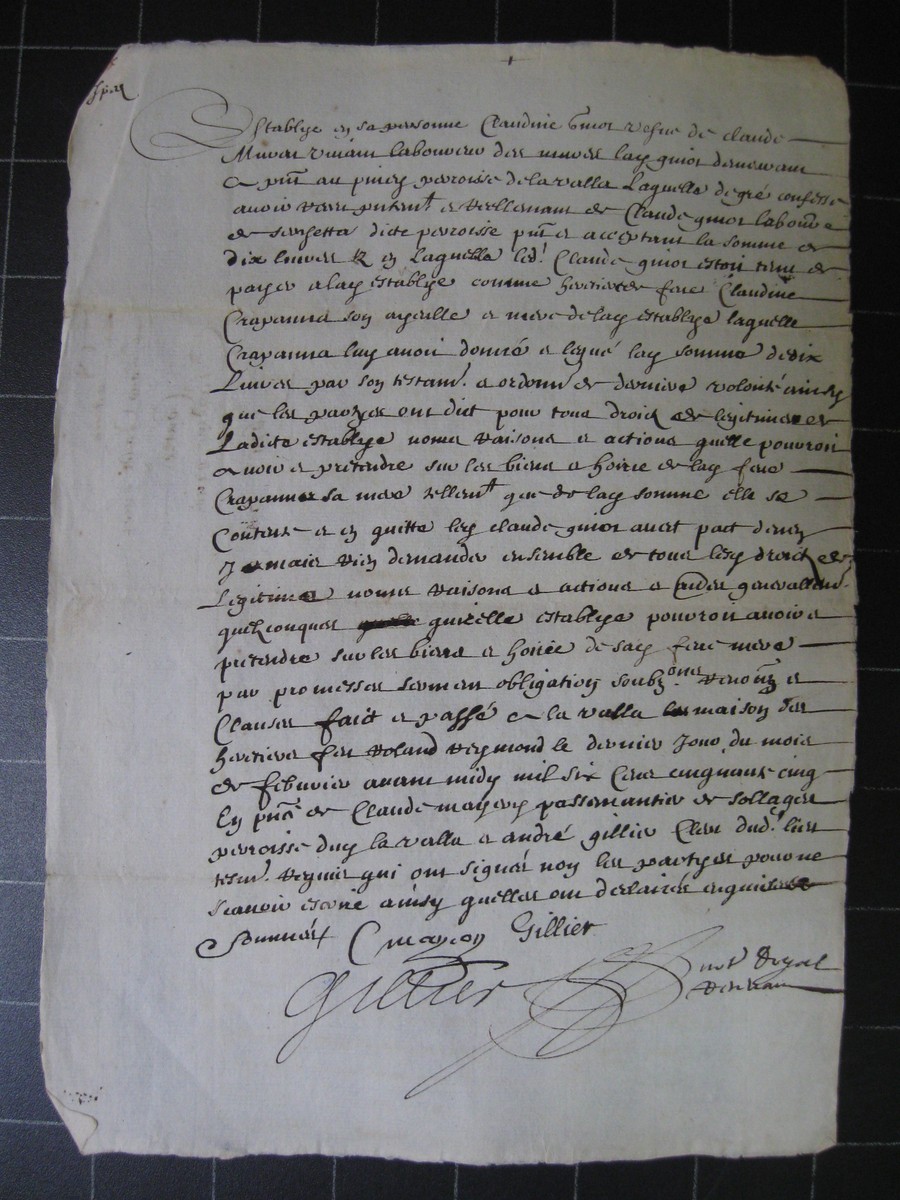 Establye en sa personne Claudine Guiot vefve de Claude
Muvet vivant laboureur des muves lad guiot demeurant
a pnt au piney perroisse de la valla Laquelle de gré confesse
avoir receu pntemt e reellement de Claude guiot laboure
de sarsetta dicte perroisse pnt e acceptant la somme de
dix livres tz en laquelle led. Claude guiot estoit tenu de
payer a lad establye comme heretier de feue Claudine
Crapanna son ayeulle e mere de lad establye laquelle
Crapanna luy avoit donné e legué lad somme de dix
Livres par son testamt e ordonnce de derniere volonté ainsy
que les partyes ont dict pour tous droictz de legitime de
Ladicte establye noms raisons e actions quelle pourroit
avoir e pretendre sur les biens e hoirie de lad feue
Crapanna sa mere tellemt que de lad somme elle se
Contente e en quitte led claude guiot avec pact denen
Jamais rien demander ensemble de tous lesd droictz de
Legitime noms raisons e actions e aultres generallemt
quelconques quicelle establye pourroit avoir e
pretendre sur les biens e hoirie de sad feue mere
par promesses serment obligation soubzons renonns e
Clauses faict e passé a la valla maison des
heretiers feu Roland Reymond le dernier Jour du mois
de febvrier avant midy mil six cens cinquante cinq
En pnce de Claude mayery passemantier de sollages
perroisse dud la valla e andré gillier Clerc dud. lieu
tesmt requis qui ont signés non les partyes pour ne
scavoir escrire ainsy quelles ont declairés enquises
e Sommées C mayery Gillier
Gillier not Royal